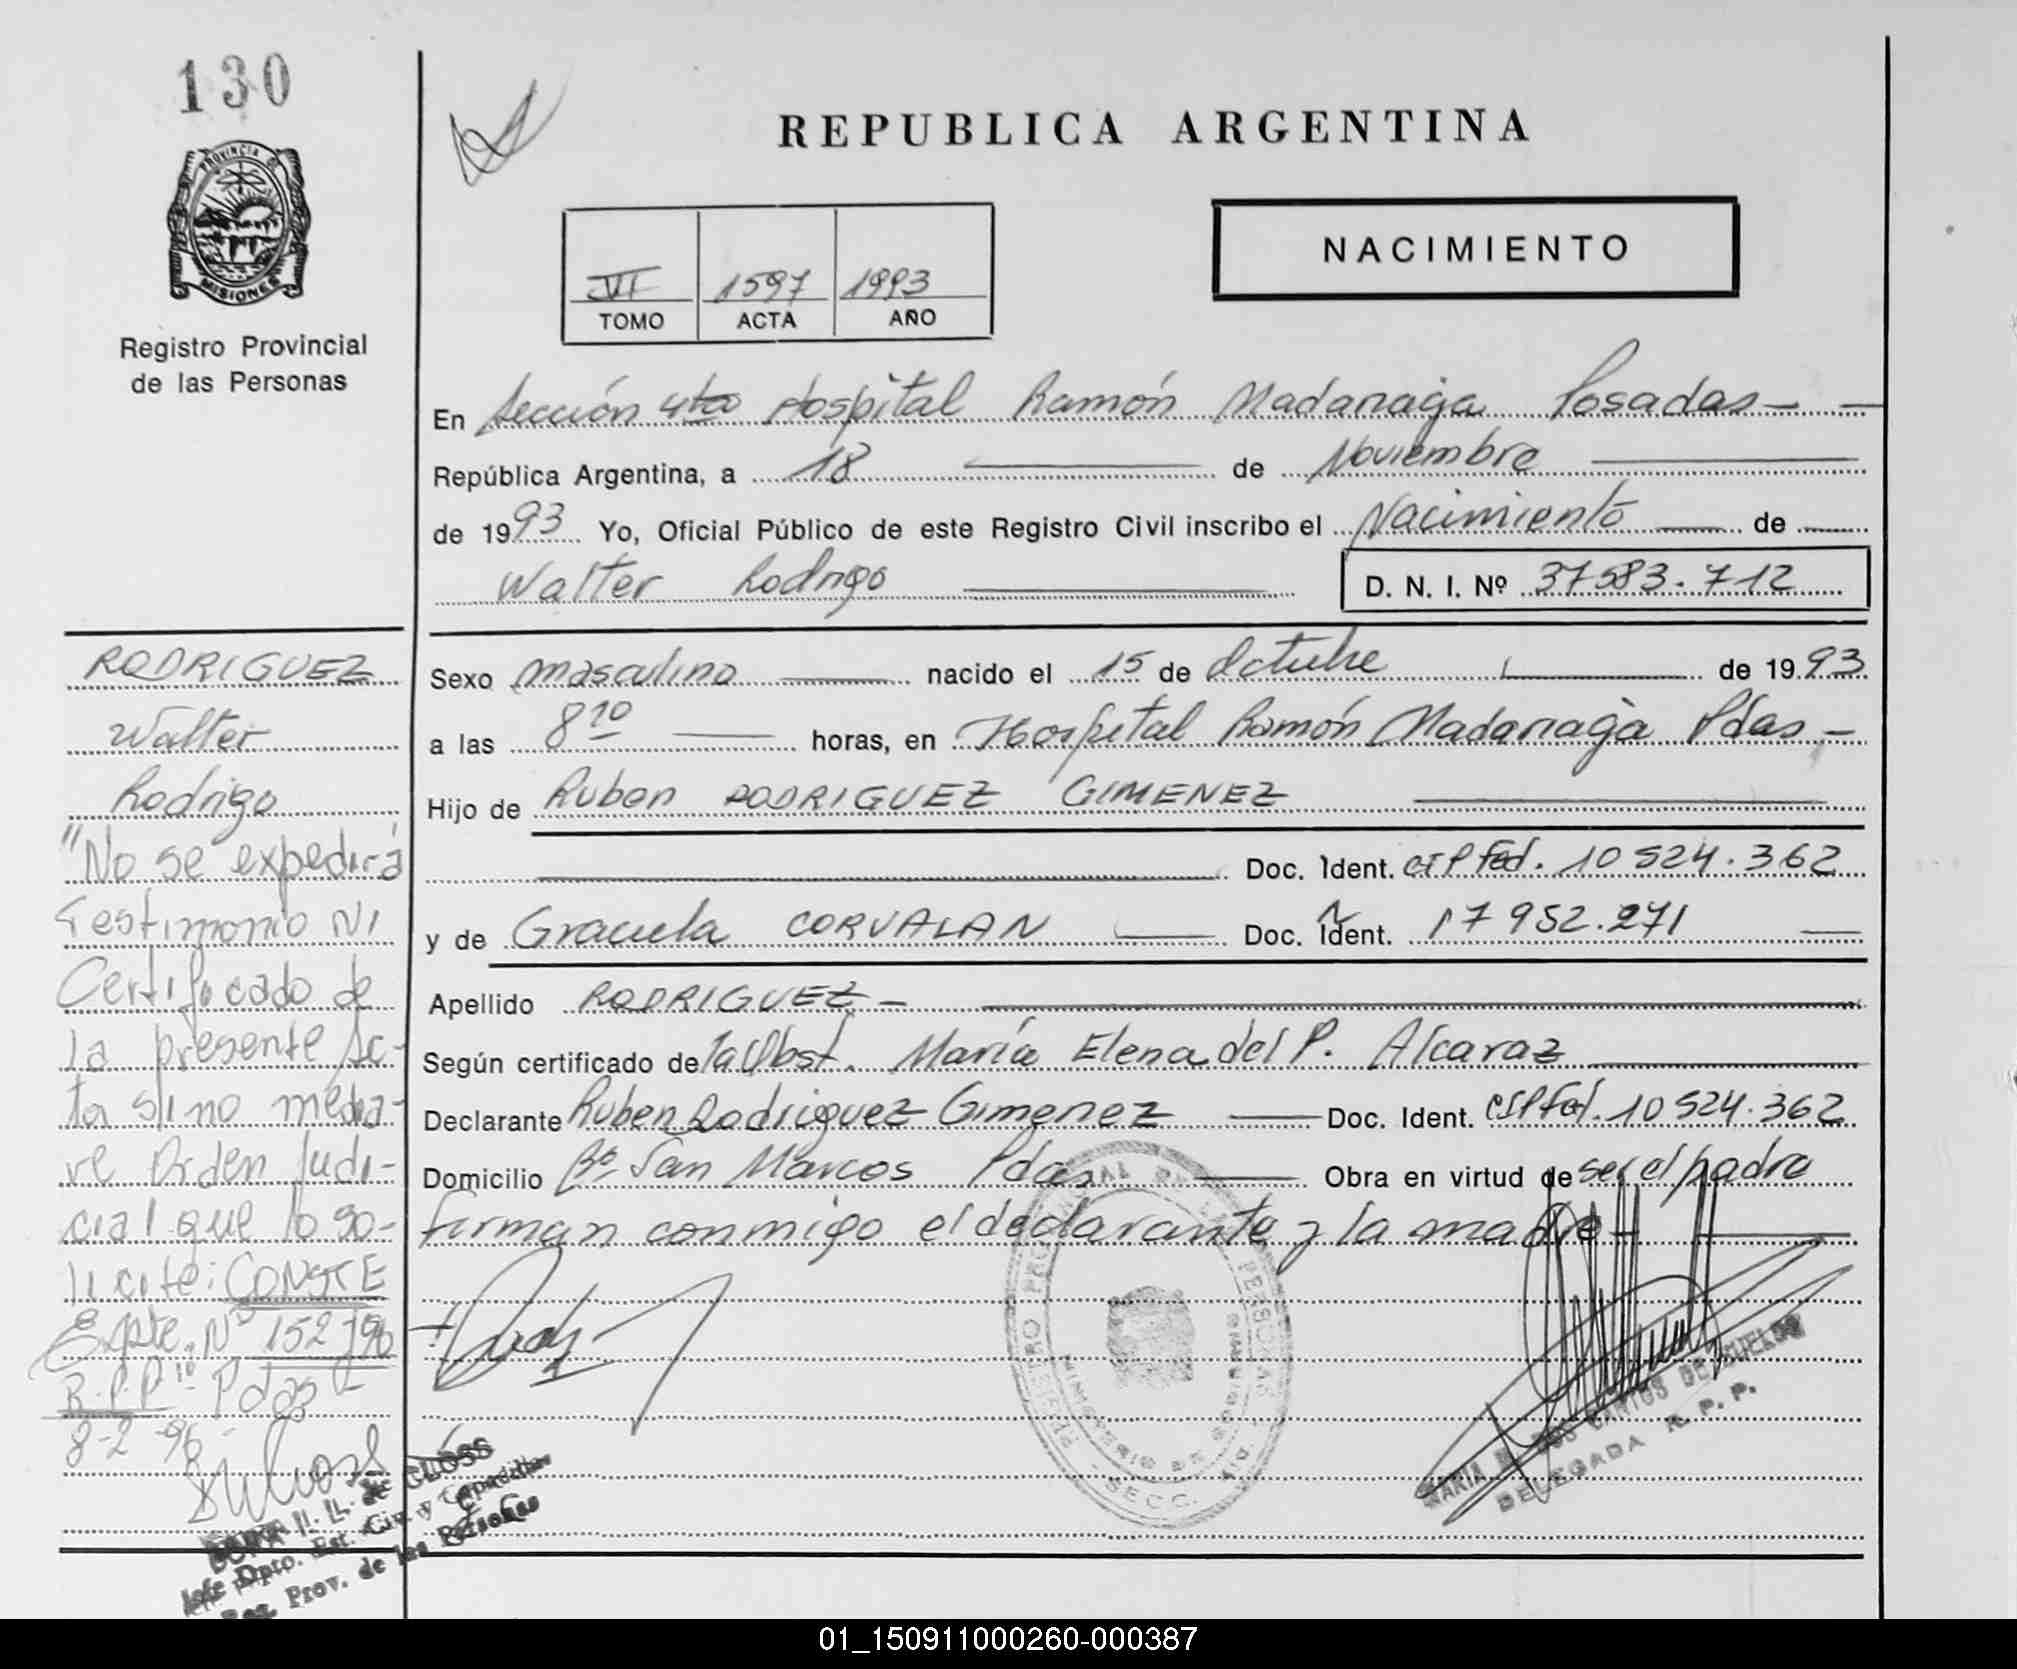 130
PROVINCIA DE
MISIONES
Registro Provincial
de las Personas
REPUBLICA ARGENTINA
NACIMIENTO
VI 1597 1993
TOMO ACTA AÑO
En Sección 4ta Hospital Ramón Madariaga Posadas
República Argentina, a 18 de Noviembre
de 1993 Yo, Oficial Público de este Registro Civil inscribo el Nacimiento de
Walter Rodrigo D. N. I. Nº 37583.712
Sexo masculino nacido el 15 de Octubre de 1993
a las 8 10 horas, en Hospital Ramón Madariaga Pdas
Hijo de Ruben RODRIGUEZ GIMENEZ
Doc. Ident. CIP Fed. 10524.362
y de Graciela CORVALAN Doc. Ident. 17952.271
Apellido RODRIGUEZ
Según certificado de la Obst. María Elena del P. Alcaraz
Declarante Ruben Rodriguez Gimenez Doc. Ident. CIP Fed. 10524.362
Domicilio Bº San Marcos Pdas Obra en virtud de ser el padre
firman conmigo el declarante y la madre
RODRIGUEZ
Walter
Rodrigo
"No se expedirá
Testimonio NI
Certificado de
la presente Ac-
ta sino media-
re Orden Judi-
cial que lo so-
licite: CONSTE
Expte. Nº 152/96
R.P.P. Pdas
8-2-96
de CLOSS
Jefe Dpto. Est. Civ. y Capacidad
Reg. Prov. de las Personas
REGISTRO PROVINCIAL DE LAS PERSONAS
MINISTERIO DE GOBIERNO
SECC. 4ta
MARIA DOS SANTOS DE
DELEGADA R. P. P.
01_150911000260-000387